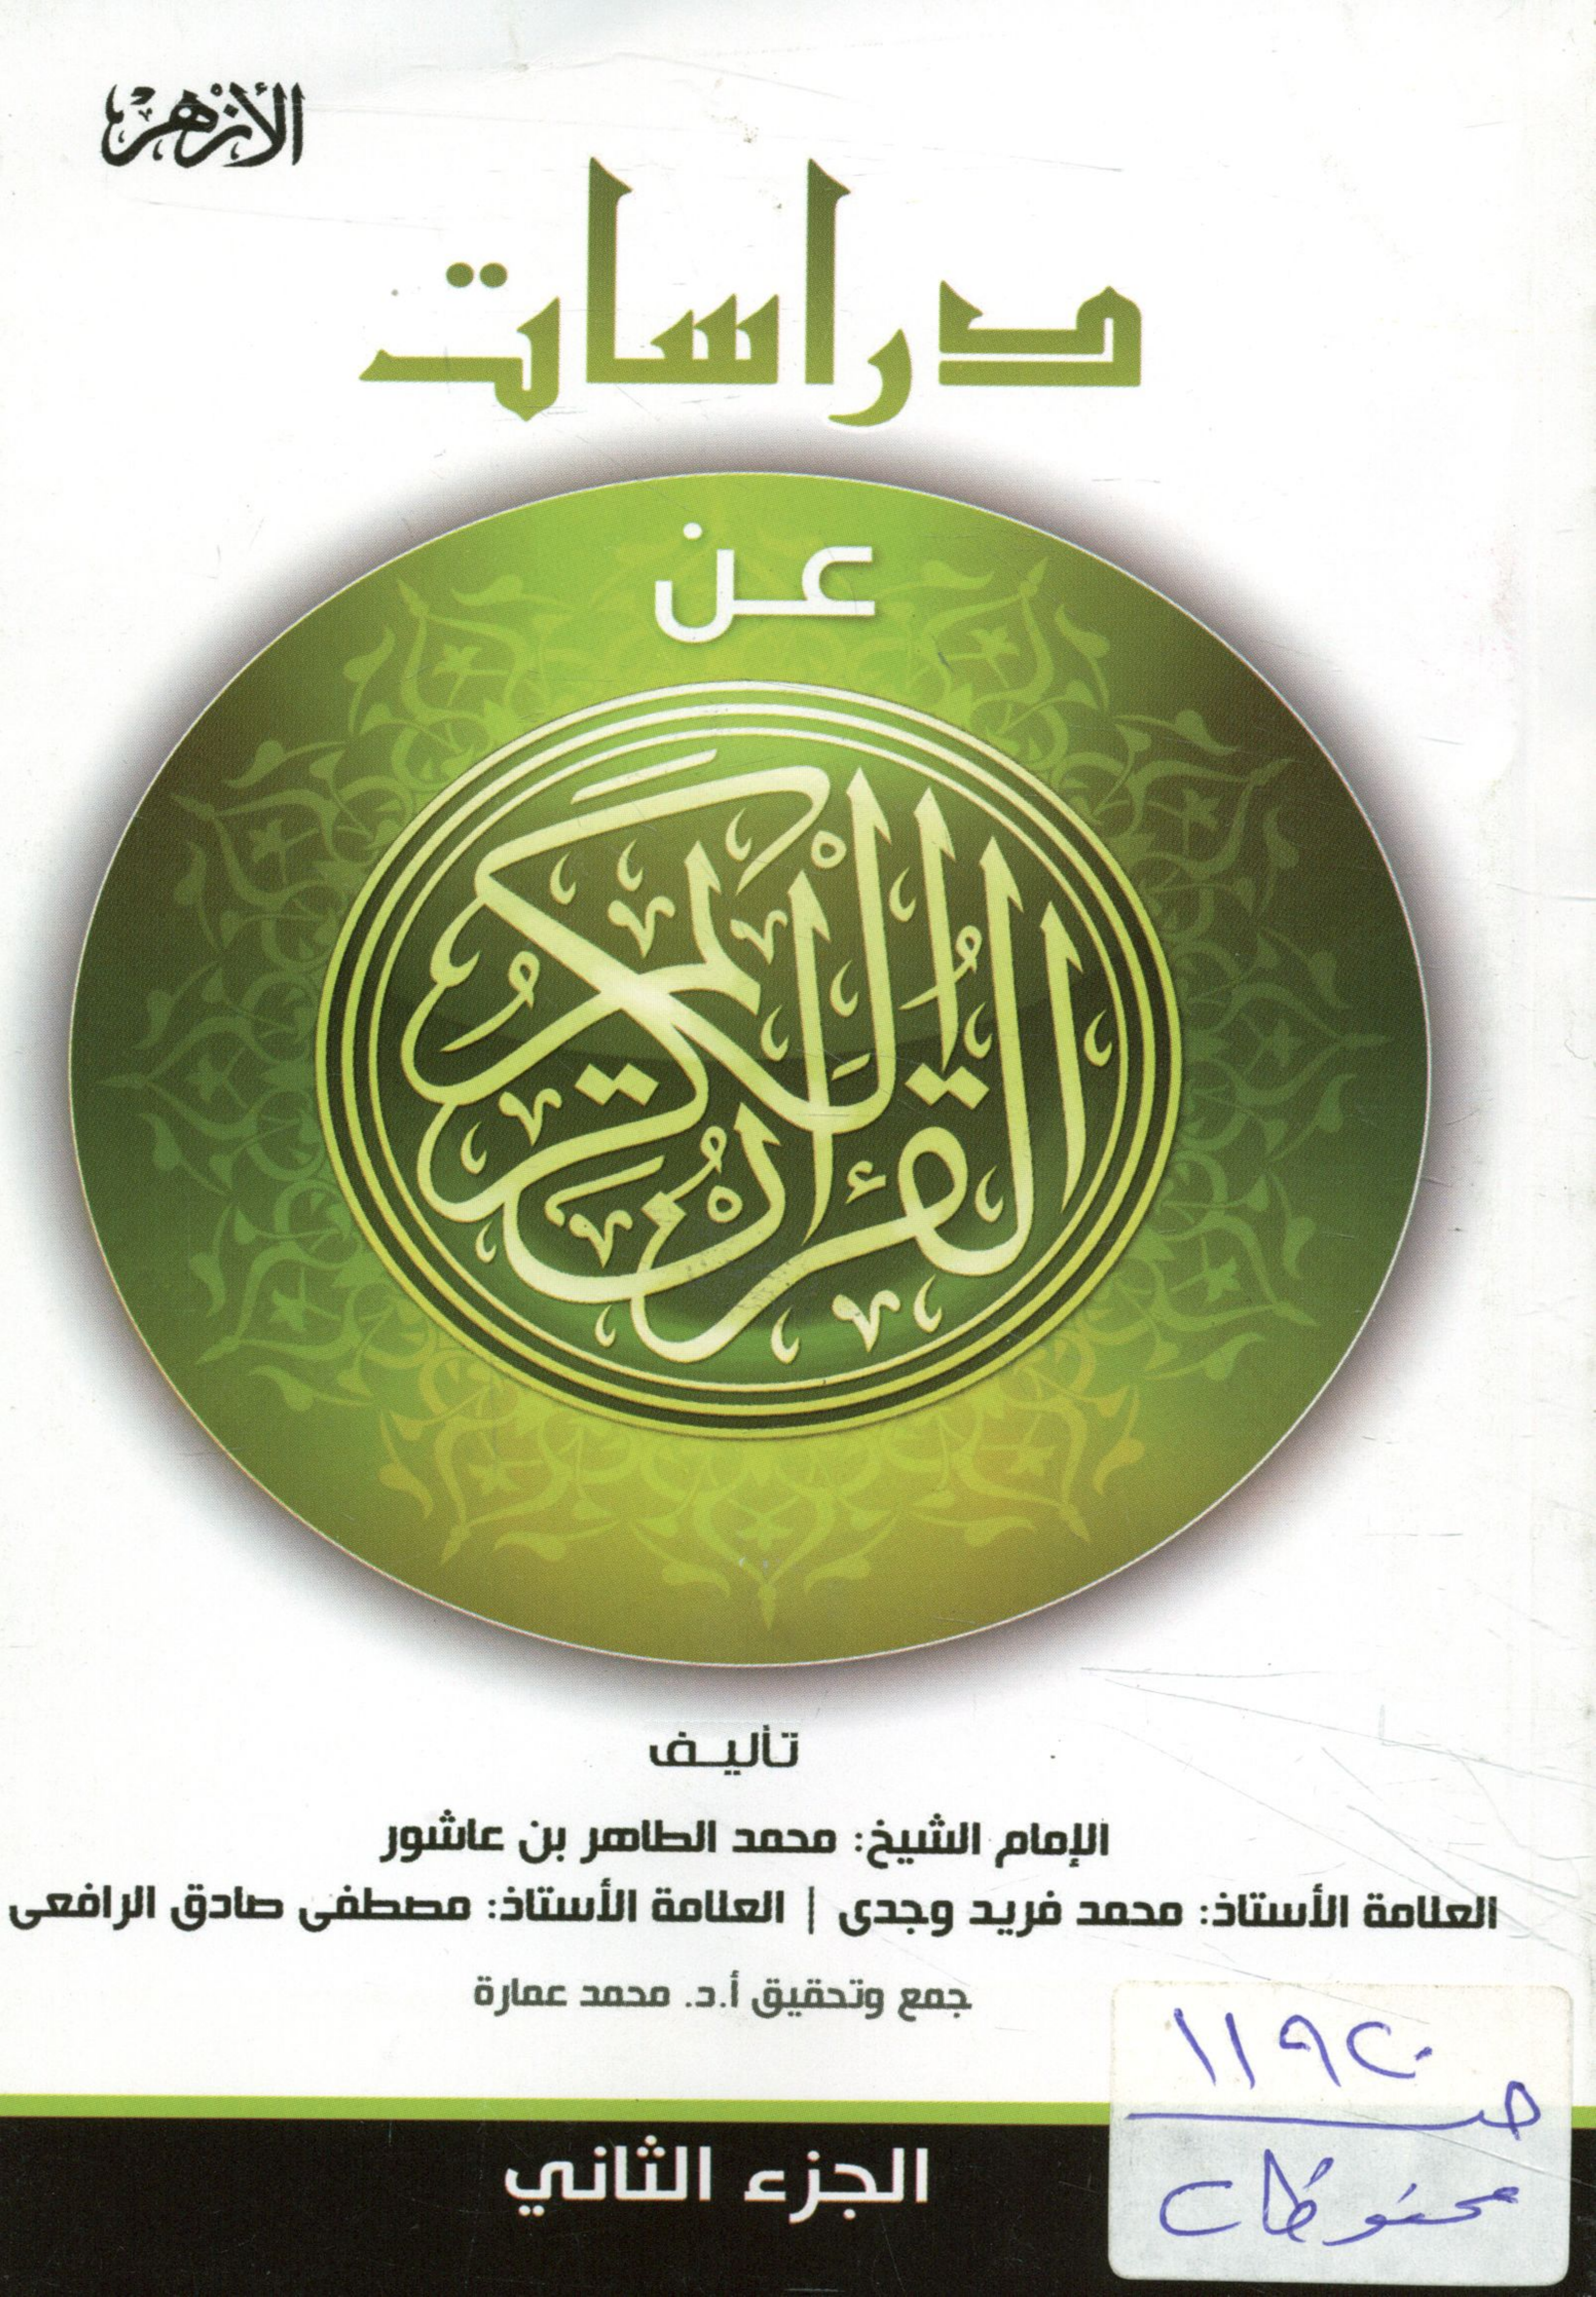 الأزهر
دراسات
عن
القرآن الكريم
تأليف
الإمام الشيخ: محمد الطاهر بن عاشور
العلامة الأستاذ: محمد فريد وجدى | العلامة الأستاذ: مصطفى صادق الرافعى
جمع وتحقيق أ.د. محمد عمارة
١١٩٢٠
محفوظات
الجزء الثاني